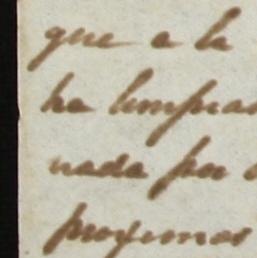 que a la
ha limpiad
nada por
proximos